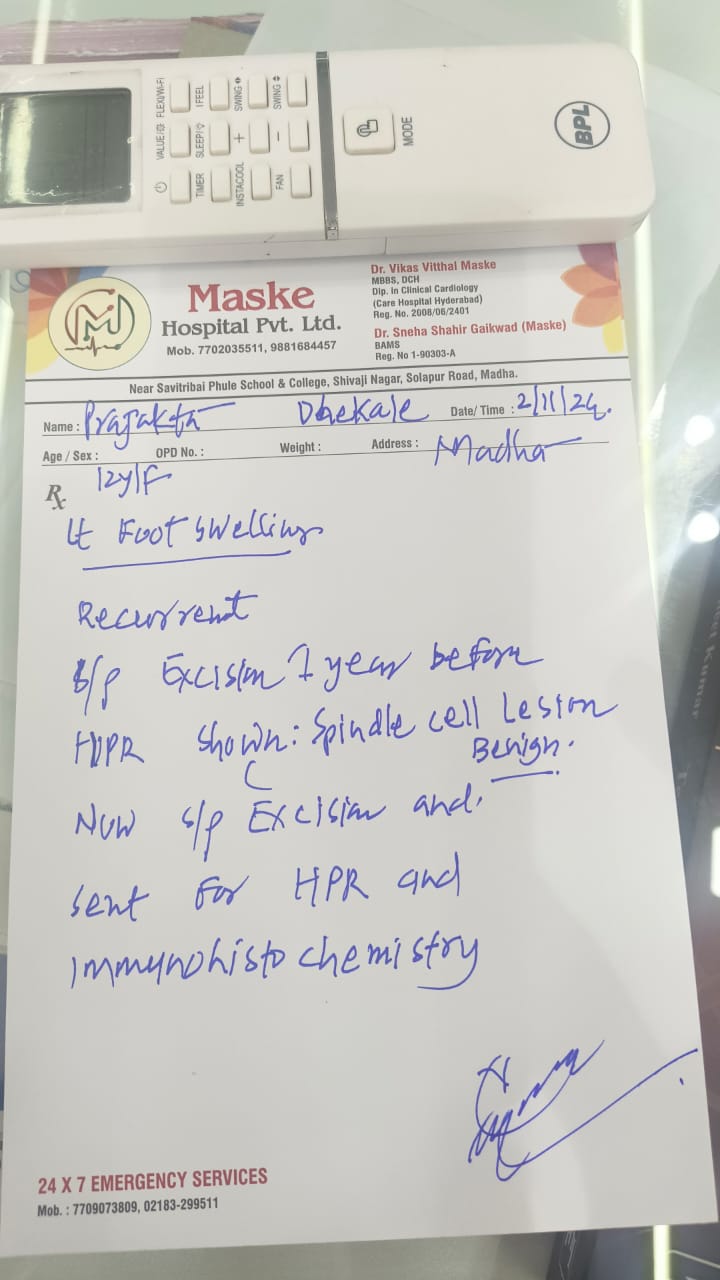 FLEXI/Wi-Fi
I FEEL
SWING
SWING
VALUE/
SLEEP/
+
-
TIMER
INSTACOOL
FAN
MODE
BPL
Maske
Hospital Pvt. Ltd.
Mob. 7702035511, 9881684457
Dr. Vikas Vitthal Maske
MBBS, DCH
Dip. In Clinical Cardiology
(Care Hospital Hyderabad)
Reg. No. 2008/06/2401
Dr. Sneha Shahir Gaikwad (Maske)
BAMS
Reg. No 1-90303-A
Near Savitribai Phule School & College, Shivaji Nagar, Solapur Road, Madha.
Name : Prajakta Dhekale Date/ Time : 2/11/24.
Age / Sex : OPD No. : Weight : Address : Madha
12y/F
Rx
Lt Foot swelling
Recurrent
s/p Excision 1 year before
HPR shown: Spindle cell Lesion
Benign.
Now s/p Excision and
sent For HPR and
immunohistochemistry
24 X 7 EMERGENCY SERVICES
Mob. : 7709073809, 02183-299511